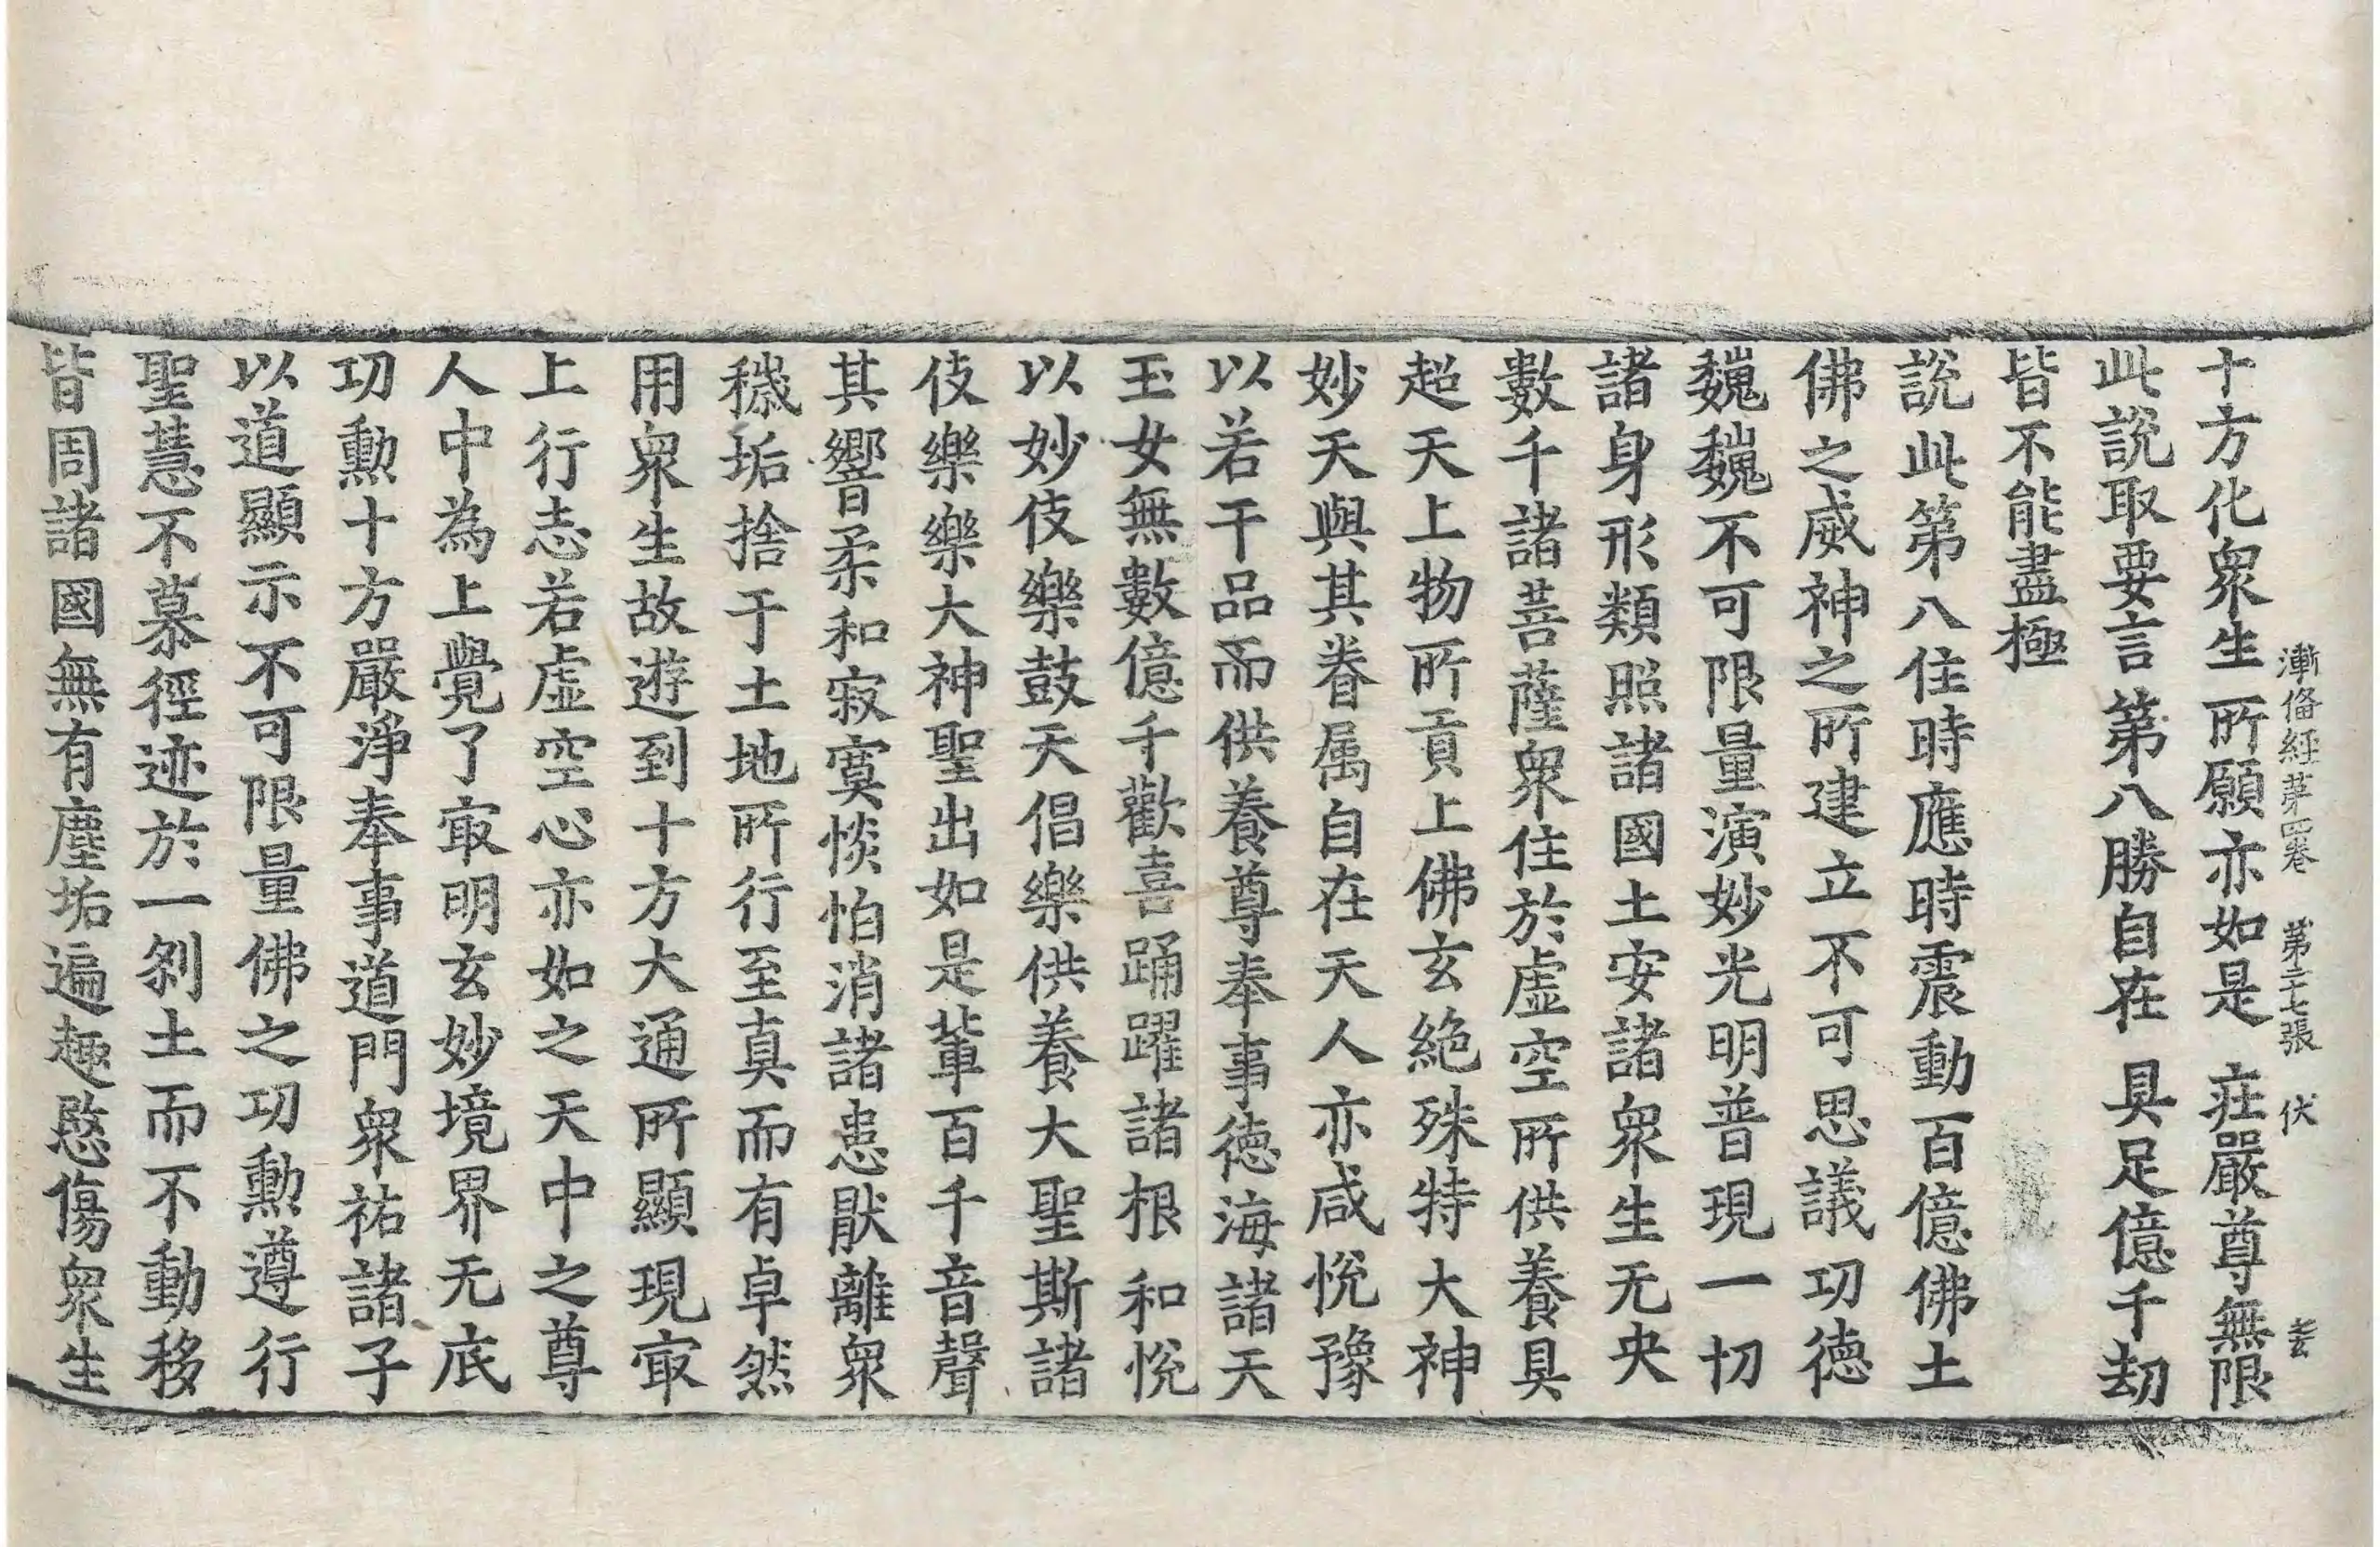 漸俻經苐四卷　第二十七張　伏
十方化衆生所願亦如是　莊嚴尊無限
此說取要言第八勝自在　具足億千劫
皆不能盡極
說此第八住時應時震動百億佛土
佛之威神之所建立不可思議功德
巍巍不可限量演妙光明普現一切
諸身形類照諸國土安諸衆生无央
數千諸菩薩衆住於虛空所供養具
超天上物所貢上佛玄絶殊特大神
妙天與其眷属自在天人亦咸悅豫
以若干品而供養尊奉事德海諸天
玉女無數億千歡喜踊躍諸根和悅
以妙伎樂鼓天倡樂供養大聖斯諸
伎樂樂大神聖出如是輩百千音聲
其響柔和寂寞惔怕消諸患猒離衆
穢垢捨于土地所行至真而有卓然
用衆生故遊到十方大通所顯現㝡
上行志若虛空心亦如之天中之尊
人中為上覺了㝡明玄妙境界无底
功勳十方嚴淨奉事道門衆祐諸子
以道顯示不可限量佛之功勳遵行
聖慧不慕徑迹於一刹土而不動移
皆周諸國無有塵垢遍趣愍傷衆生